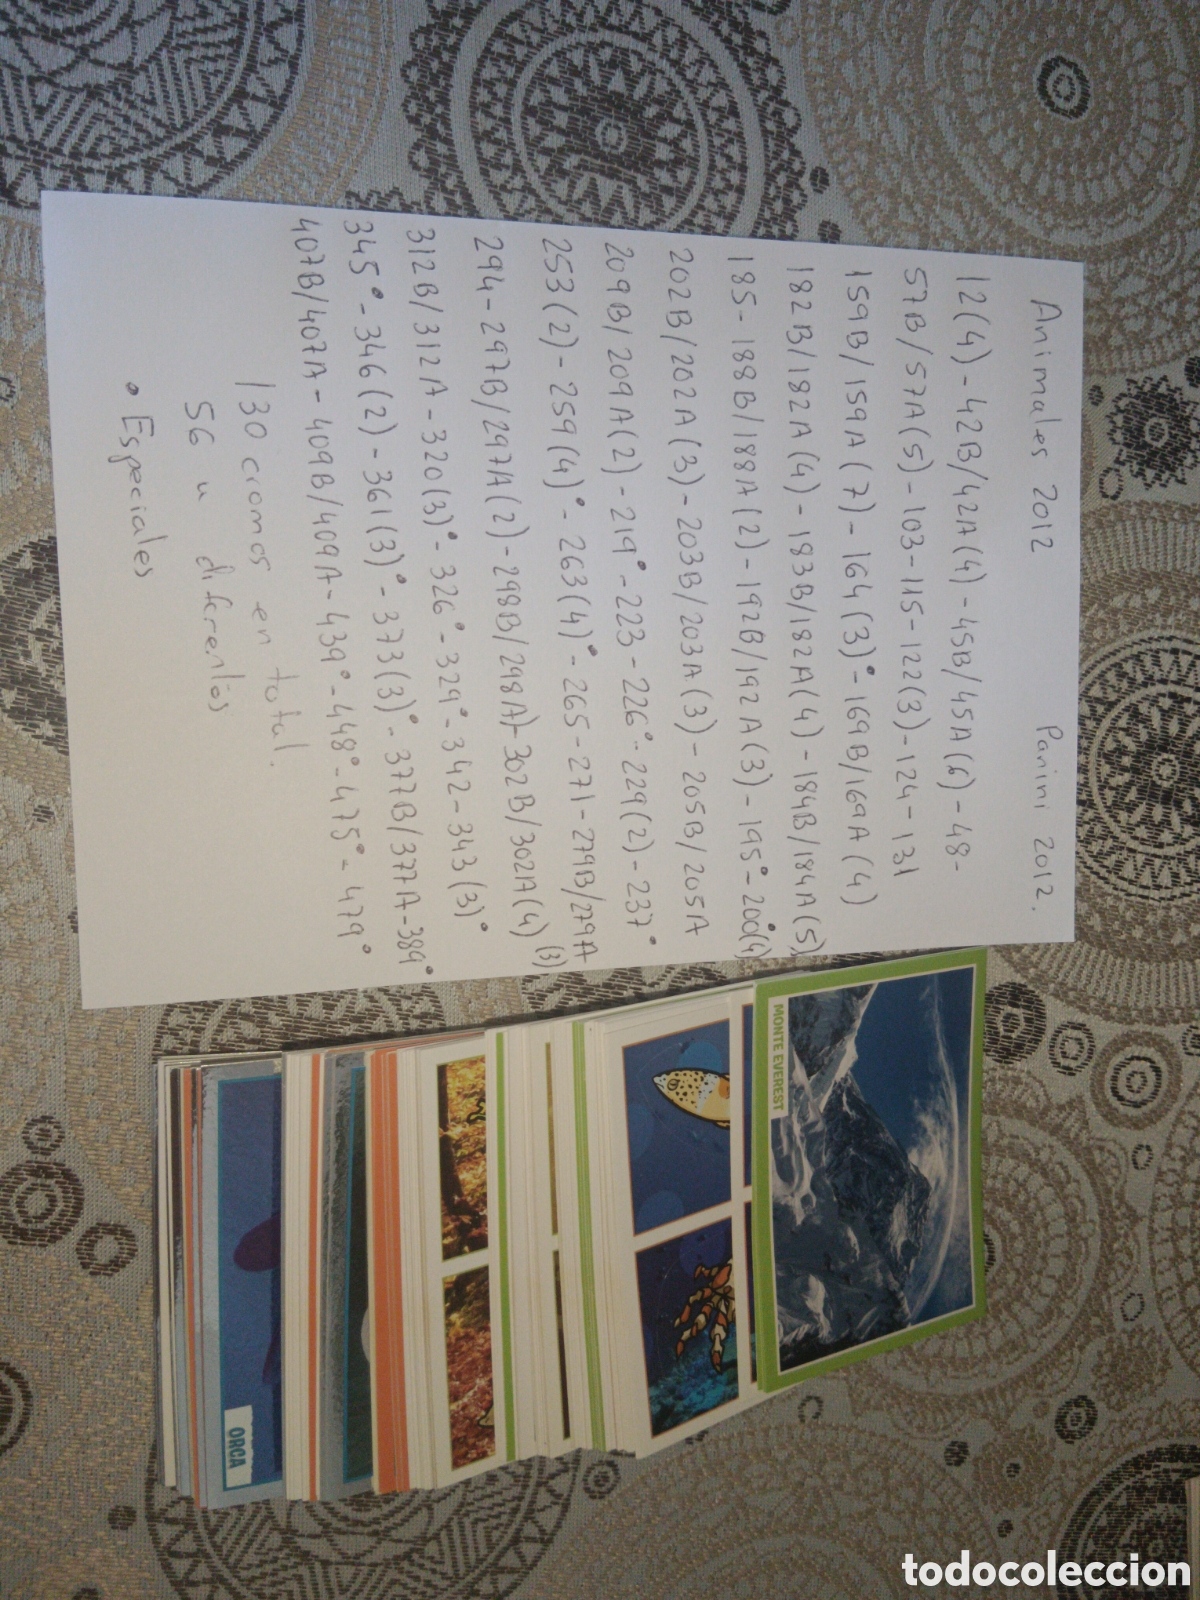 Animales 2012 Panini 2012.
12(4) - 42B/42A(4) - 45B/45A(6) - 48 -
57B/57A(5) - 103 - 115 - 122(3) - 124 - 131
159B/159A(7) - 164(3)° - 169B/169A(4)
182B/182A(4) - 183B/182A(4) - 184B/184A(5)
185 - 188B/188A(2) - 192B/192A(3) - 195° - 200°(4)
202B/202A(3) - 203B/203A(3) - 205B/205A
209B/209A(2) - 219° - 223 - 226° - 229(2) - 237°
253(2) - 259(4)° - 263(4)° - 265 - 271 - 279B/279A
(3)
294 - 297B/297A(2) - 298B/298A) - 302B/302A(4)
312B/312A - 320(3)° - 326° - 329° - 342 - 343(3)°
345° - 346(2) - 361(3)° - 373(3)° - 377B/377A - 389°
407B/407A - 409B/409A - 439° - 448° - 475° - 479°
130 cromos en total.
56 u diferentes
• Especiales
MONTE EVEREST
ORCA
todocoleccion